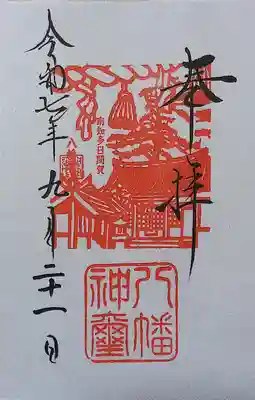 奉拝
南知多日間賀
八幡
神璽
令和七年九月二十一日